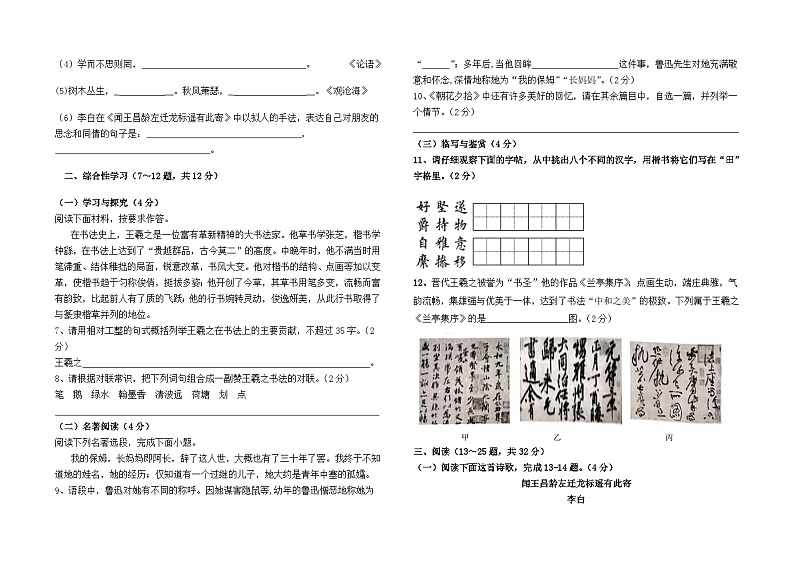 （4）学而不思则罔，________________________________。 《论语》
(5)树木丛生，____________。秋风萧瑟，__________________。《观沧海》
（6）李白在《闻王昌龄左迁龙标遥有此寄》中以拟人的手法，表达自己对朋友的
思念和同情的句子是：________________________________，
________________________________。
二、综合性学习（7～12题，共12分）
（一）学习与探究（4分）
阅读下面材料，按要求作答。
在书法史上，王羲之是一位富有革新精神的大书法家。他草书学张芝，楷书学
钟繇，在书法上达到了“贵越群品，古今莫二”的高度。中晚年时，他不满当时用
笔滞重、结体稚拙的局面，锐意改革，书风大变。他对楷书的结构、点画等加以变
革，使楷书趋于匀称俊俏，挺拔多姿；他开创了今草，其草书用笔多变，流畅而富
有韵致，比起前人有了质的飞跃；他的行书婉转灵动，俊逸妍美，从此行书取得了
与篆隶楷草并列的地位。
7、请用相对工整的句式概括列举王羲之在书法上的主要贡献，不超过35字。（2
分）
王羲之________________________________________________________。
8、请根据对联常识，把下列词句组合成一副赞王羲之书法的对联。（2分）
笔 鹅 绿水 翰墨香 清波远 荷塘 划 点
（二）名著阅读（4分）
阅读下列名著选段，完成下面小题。
我的保姆，长妈妈即阿长，辞了这人世，大概也有了三十年了罢。我终于不知
道她的姓名，她的经历；仅知道有一个过继的儿子，她大约是青年守寡的孤孀。
9、语段中，鲁迅对她有不同的称呼。因她谋害隐鼠等,幼年的鲁迅憎恶地称她为
“______”；多年后,当他回眸__________________这件事，鲁迅先生对她充满敬
意和怀念,深情地称她为“我的保姆”“长妈妈”。（2分）
10、《朝花夕拾》中还有许多美好的回忆，请在其余篇目中，自选一篇，并列举一
个情节。（2分）
（三）临写与鉴赏（4分）
11、请仔细观察下面的字帖，从中挑出八个不同的汉字，用楷书将它们写在“田”
字格里。（2分）
好 坚 逐
爵 持 物
自 雅 意
縻 操 移
12、晋代王羲之被誉为“书圣”他的作品《兰亭集序》，点画生动，端庄典雅，气
韵流畅，集雄强与优美于一体，达到了书法“中和之美”的极致。下列属于王羲之
《兰亭集序》的是________________图。（2分）
甲 乙 丙
三、阅读（13～25题，共32分）
（一）阅读下面这首诗歌，完成13-14题。（4分）
闻王昌龄左迁龙标遥有此寄
李白